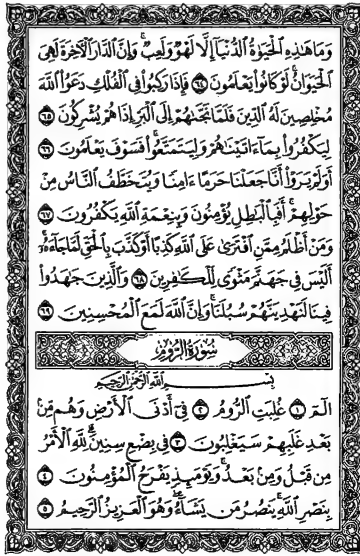 وَمَا هَٰذِهِ الْحَيَوٰةُ الدُّنْيَآ إِلَّا لَهْوٌ وَلَعِبٌ ۚ وَإِنَّ الدَّارَ الْآخِرَةَ لَهِيَ
الْحَيَوَانُ ۚ لَوْ كَانُوا۟ يَعْلَمُونَ ٦٤ فَإِذَا رَكِبُوا۟ فِي الْفُلْكِ دَعَوُا۟ اللَّهَ
مُخْلِصِينَ لَهُ الدِّينَ فَلَمَّا نَجَّىٰهُمْ إِلَى الْبَرِّ إِذَا هُمْ يُشْرِكُونَ ٦٥
لِيَكْفُرُوا۟ بِمَآ ءَاتَيْنَٰهُمْ وَلِيَتَمَتَّعُوا۟ ۖ فَسَوْفَ يَعْلَمُونَ ٦٦
أَوَلَمْ يَرَوْا۟ أَنَّا جَعَلْنَا حَرَمًا ءَامِنًا وَيُتَخَطَّفُ النَّاسُ مِنْ
حَوْلِهِمْ ۚ أَفَبِالْبَٰطِلِ يُؤْمِنُونَ وَبِنِعْمَةِ اللَّهِ يَكْفُرُونَ ٦٧
وَمَنْ أَظْلَمُ مِمَّنِ افْتَرَىٰ عَلَى اللَّهِ كَذِبًا أَوْ كَذَّبَ بِالْحَقِّ لَمَّا جَآءَهُۥٓ ۚ
أَلَيْسَ فِي جَهَنَّمَ مَثْوًى لِّلْكَٰفِرِينَ ٦٨ وَالَّذِينَ جَٰهَدُوا۟
فِينَا لَنَهْدِيَنَّهُمْ سُبُلَنَا ۚ وَإِنَّ اللَّهَ لَمَعَ الْمُحْسِنِينَ ٦٩
سُورَةُ الرُّومِ
بِسْمِ اللَّهِ الرَّحْمَٰنِ الرَّحِيمِ
الٓمٓ ١ غُلِبَتِ الرُّومُ ٢ فِيٓ أَدْنَى الْأَرْضِ وَهُم مِّنۢ
بَعْدِ غَلَبِهِمْ سَيَغْلِبُونَ ٣ فِي بِضْعِ سِنِينَ ۗ لِلَّهِ الْأَمْرُ
مِن قَبْلُ وَمِنۢ بَعْدُ ۚ وَيَوْمَئِذٍ يَفْرَحُ الْمُؤْمِنُونَ ٤
بِنَصْرِ اللَّهِ ۚ يَنصُرُ مَن يَشَآءُ ۖ وَهُوَ الْعَزِيزُ الرَّحِيمُ ٥